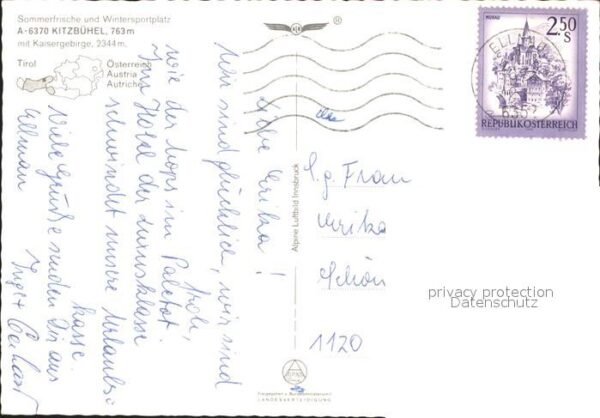 Sommerfrische und Wintersportplatz
A-6370 KITZBÜHEL, 763 m
mit Kaisergebirge, 2344 m.
Tirol
Österreich
Austria
Autriche
®
Liebe Erika!
Wir sind glücklich, wir sind
froh,
wie der Mops im Paletot.
Im Hotel der Luxusklasse
schwindet unsere Urlaubs-
kasse.
Viele Grüße senden Dir aus
Ellmau Inge + Gerhard
Alpine Luftbild Innsbruck
S.g. Frau
Erika
Schön
1120
MURAU
2.50
S
REPUBLIK ÖSTERREICH
ELLMAU
privacy protection
Datenschutz
Freigegeben v. Bundesministerium f.
LANDESVERTEIDIGUNG